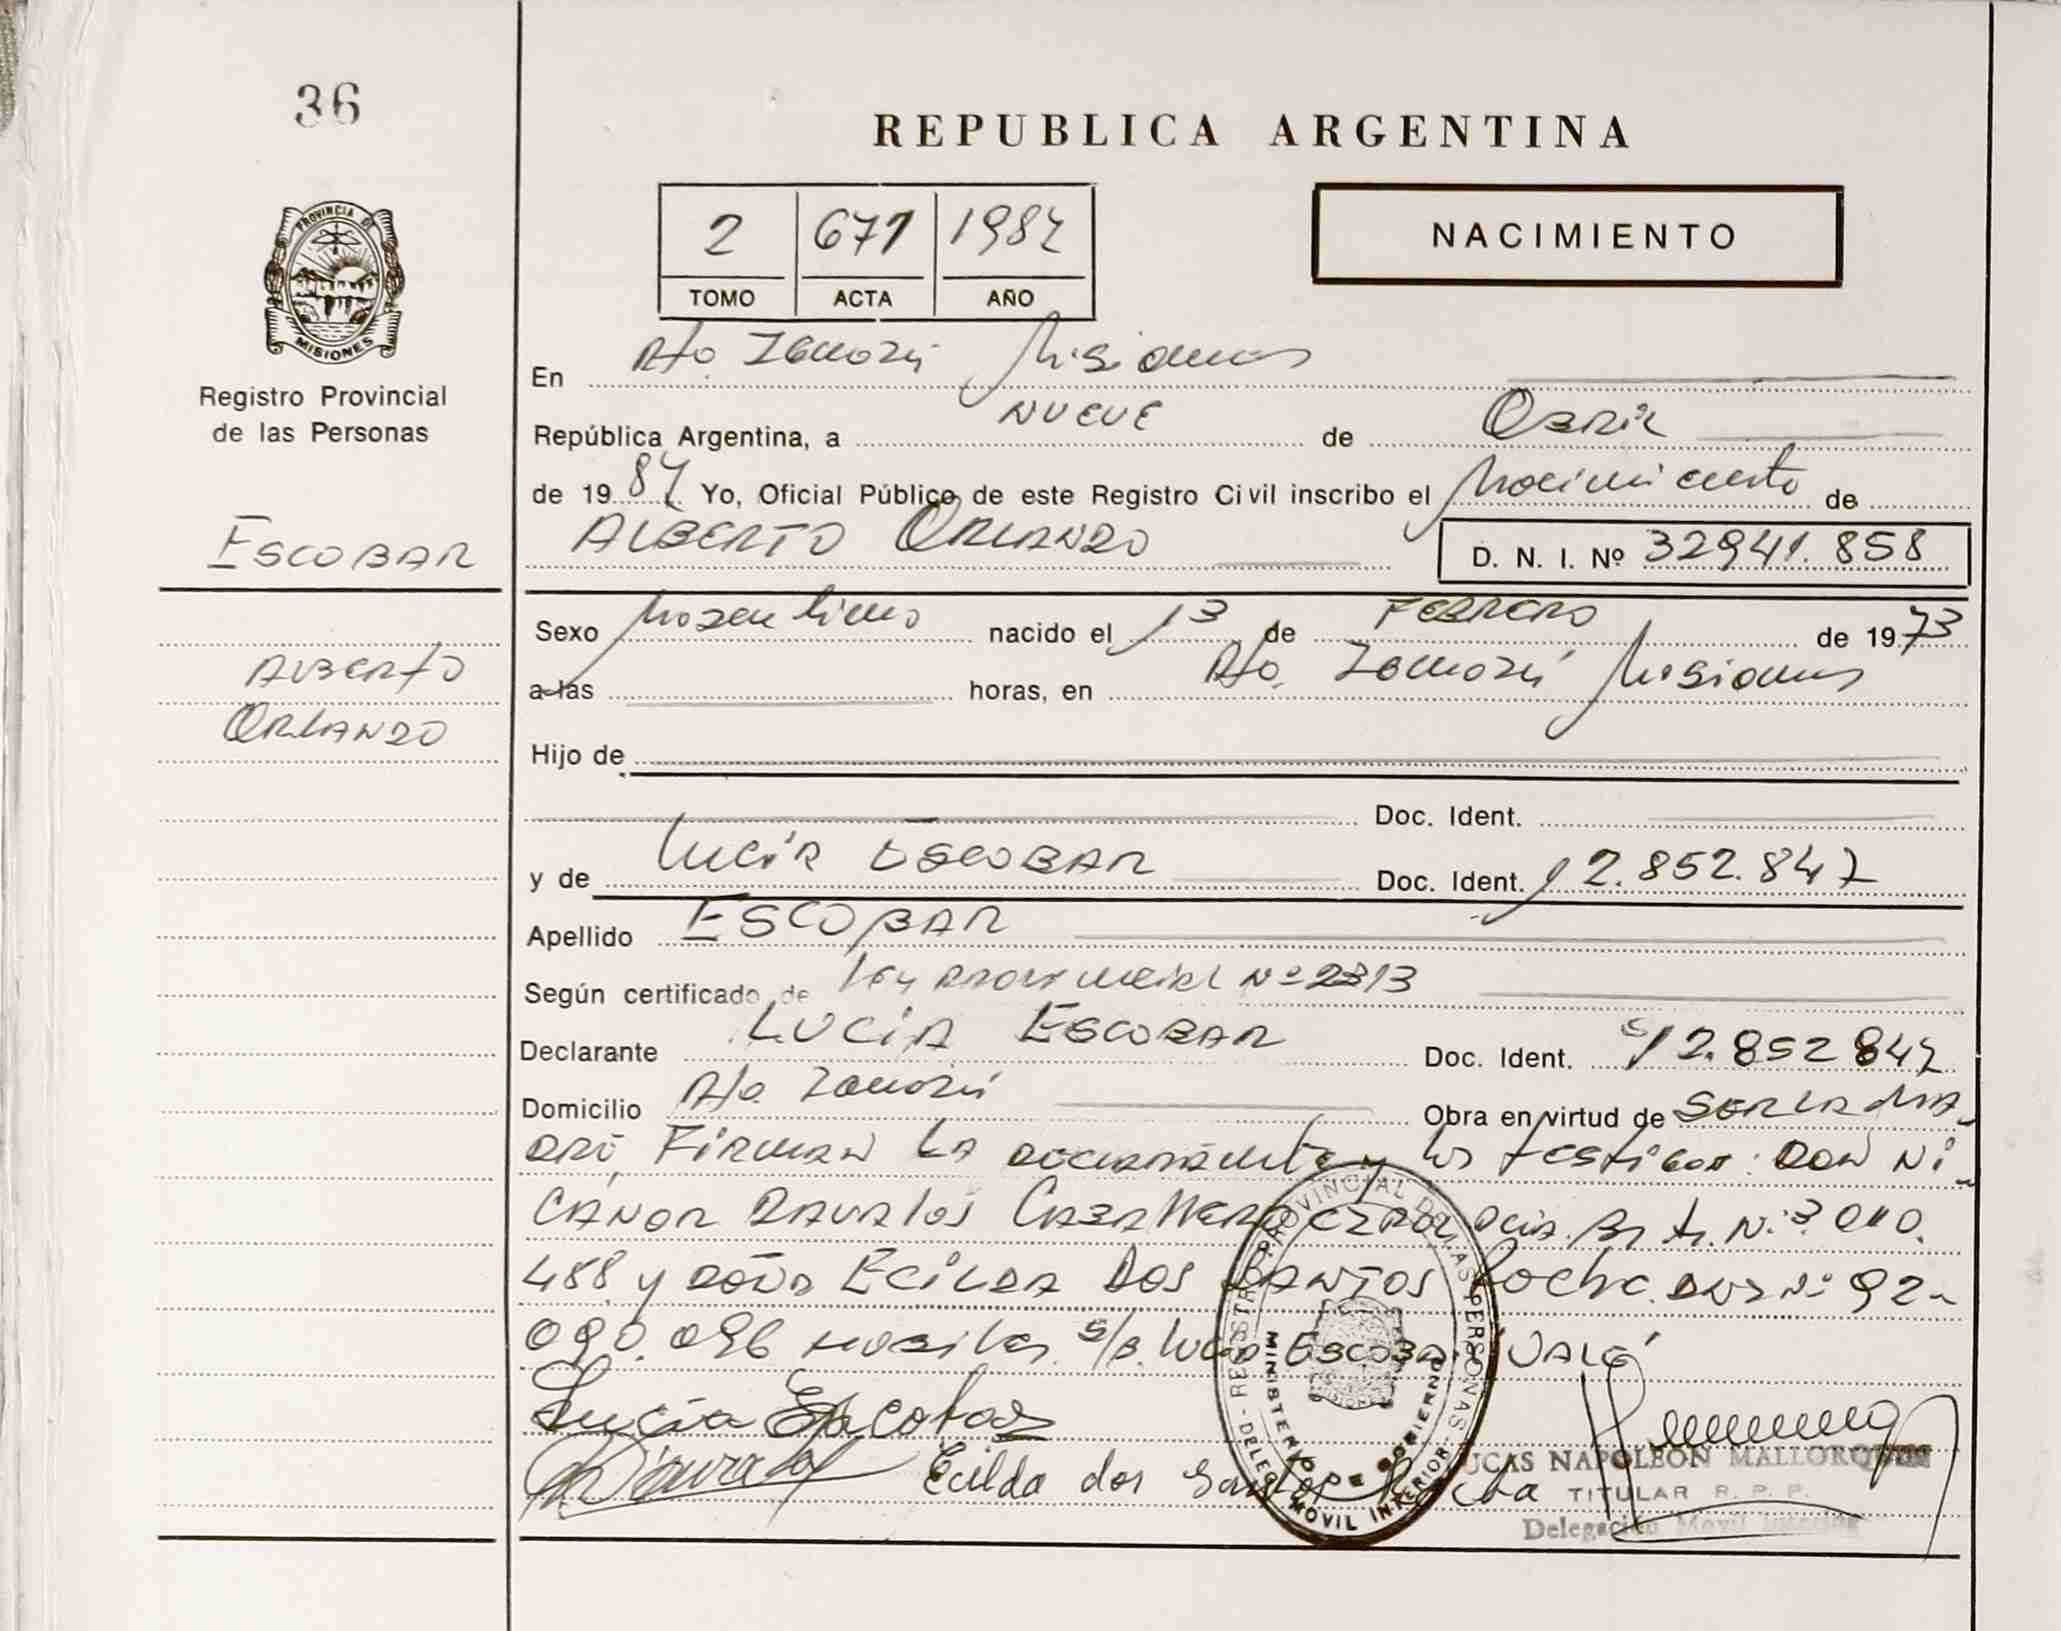 36
REPUBLICA ARGENTINA
NACIMIENTO
2 671 1987
TOMO ACTA AÑO
PROVINCIA D
MISIONES
Registro Provincial
de las Personas
ESCOBAR
ALBERTO
ORLANDO
En Misiones
República Argentina, a NUEVE de Abril
de 1987 Yo, Oficial Público de este Registro Civil inscribo el Nacimiento de
ALBERTO ORLANDO D. N. I. Nº 32941.858
Sexo Masculino nacido el 13 de FEBRERO de 1973
a las horas, en Misiones
Hijo de
Doc. Ident.
y de Lucía ESCOBAR Doc. Ident. 12.852.847
Apellido ESCOBAR
Según certificado de Ley Provincial Nº 2313
Declarante LUCIA ESCOBAR Doc. Ident. 12.852847
Domicilio Obra en virtud de SER LA MA-
DRE, Firman LA Declarante y los testigos: DON NI-
CANOR Nº
488 y doña ECILDA DOS SANTOS Rocha. DNI Nº 92-
090.096 s/b. Lucia ESCOBAR VALE
Lucía Escobar
Ecilda dos Santos Rocha
REGISTRO PROVINCIAL DE LAS PERSONAS - DELEG. MOVIL INTERIOR -
MINISTERIO DE GOBIERNO
LUCAS NAPOLEON MALLORQUIN
TITULAR R. P. P.
Delegación Movil Interior